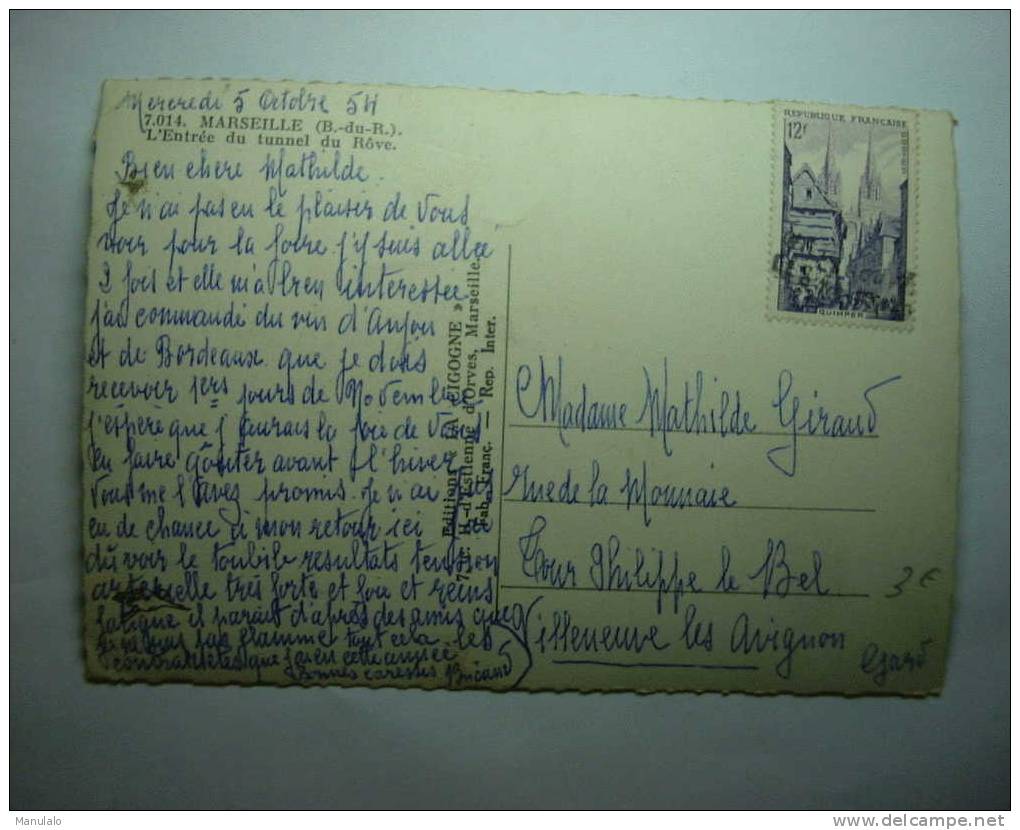 Mercredi 5 Octobre 54
7.014. MARSEILLE (B.-du-R.).
L'Entrée du tunnel du Rôve.
Bien chere Mathilde.
Je n'ai pas eu le plaisir de vous
voir pour la foire j'y suis allée
2 fois et elle m'a bien interessée
j'ai commandé du vin d'Anjou
et de Bordeaux que je dois
recevoir 1ers jours de Novembre
j'espère que j'aurais la joie de vous
en faire goûter avant l'hiver
vous me l'avez promis. Je n'ai
eu de chance à mon retour ici
du voir le toubib resultats tension
arterielle très forte et foie et reins
fatigué il parait d'après des amis que
tout cela les
contrariétés que j'ai eu cette année
Bonnes caresses
Editions « LA CIGOGNE »
H. d'Estienne d'Orves, Marseille.
Fab. Franç. — Rep. Inter.
REPUBLIQUE FRANÇAISE
12F
QUIMPER
Madame Mathilde Giraud
rue de la Monnaie
Tour Philippe le Bel
Villeneuve les Avignon
Gard
3 €
Manulalo
www.delcampe.net